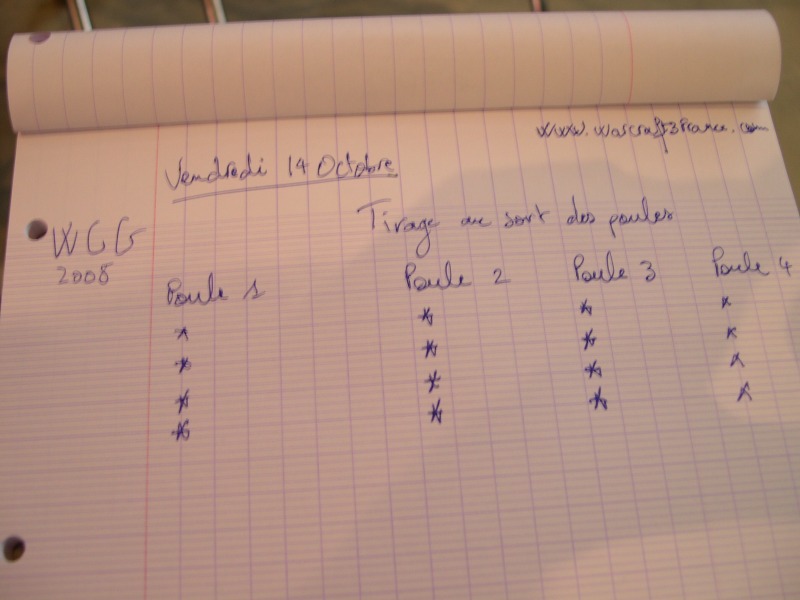 www.warcraft3france.com
Vendredi 14 Octobre
Tirage au sort des poules
WCG
2008
Poule 1 Poule 2 Poule 3 Poule 4
* * * *
* * * *
* * * *
* * * *